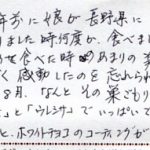 年前に娘が長野県に
りました時何度か、食べまし
せ食べた時のあまりの美
く感動したのを忘れられ
8月、なんとその巣ごもり
」と「ウレシサ」でいっぱいで
と、ホワイトチョコのコーティングが